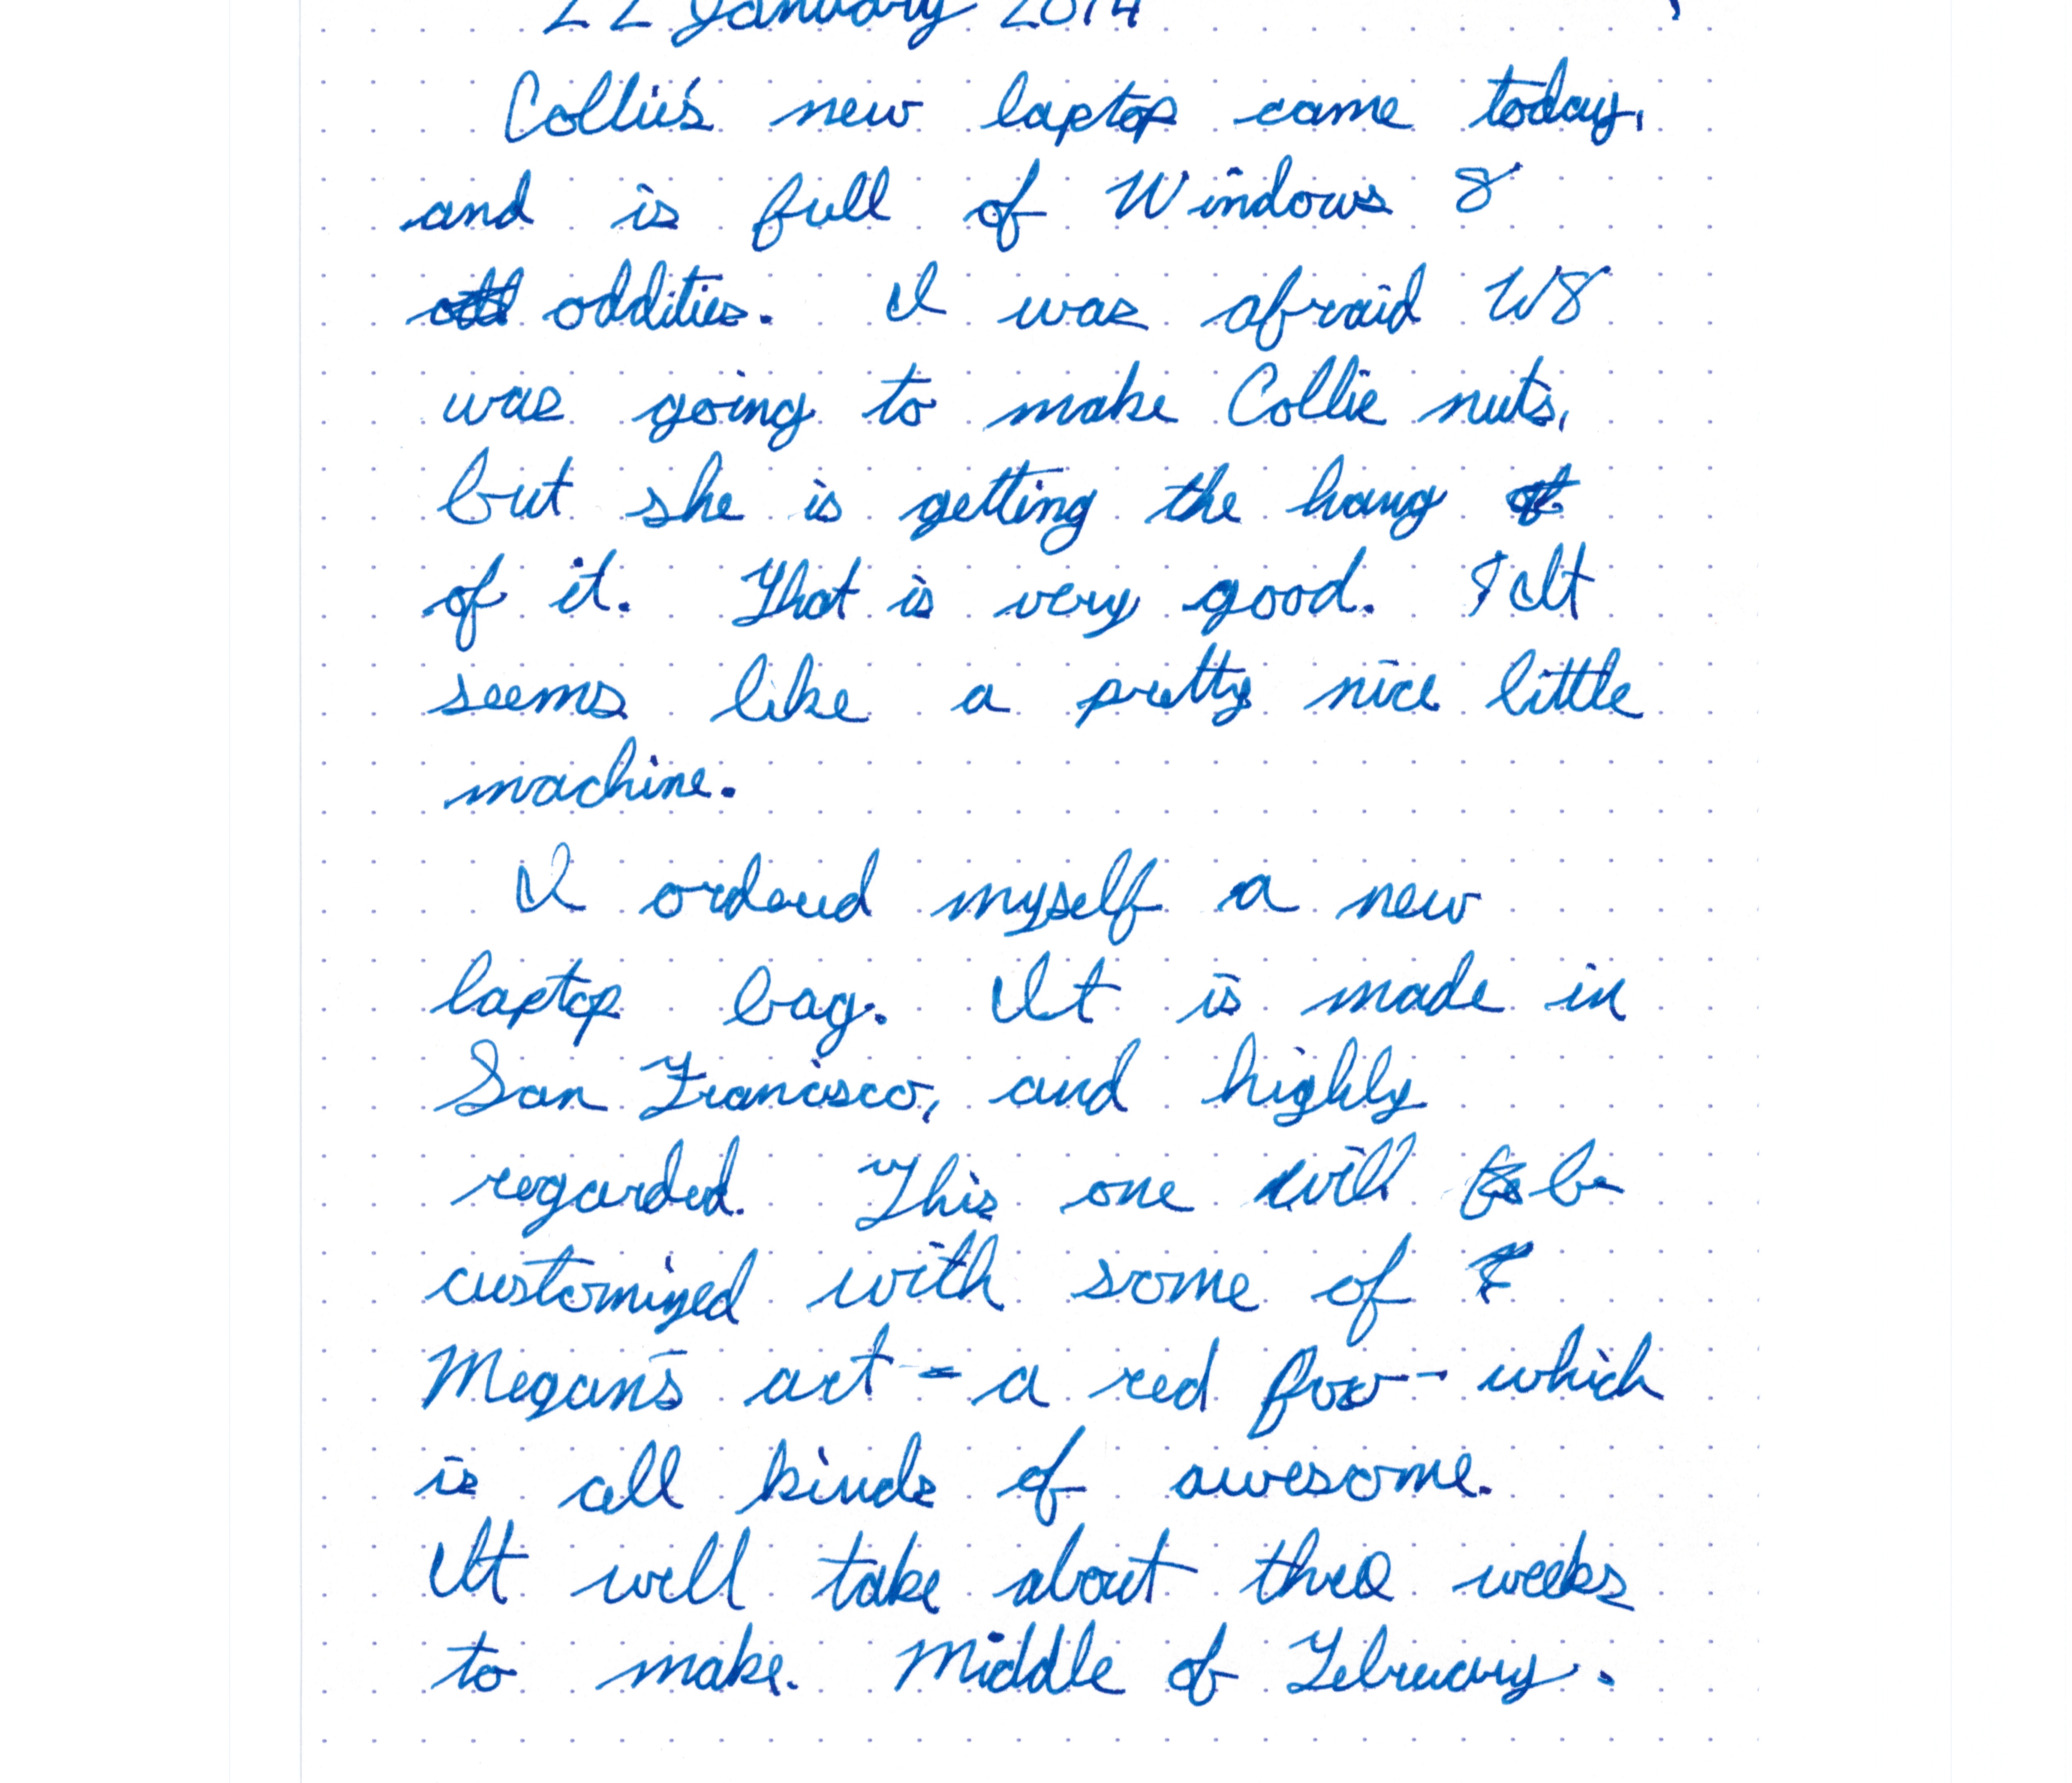 22 January 2014
Collie's new laptop came today,
and is full of Windows 8
oddities. I was afraid W8
was going to make Collie nuts,
but she is getting the hang
of it. That is very good. It
seems like a pretty nice little
machine.
I ordered myself a new
laptop bag. It is made in
San Francisco, and highly
regarded. This one will be
customized with some of
Megan's art - a red fox - which
is all kinds of awesome.
It will take about three weeks
to make. Middle of February.